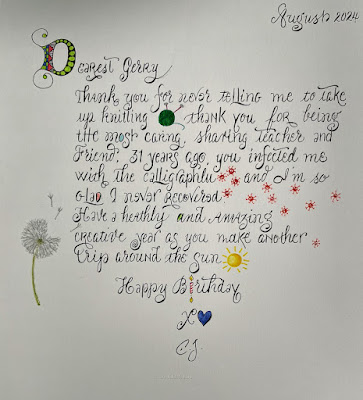 August 2024
Dearest Gerry
Thank you for never telling me to take
up knitting thank you for being
the most caring, sharing teacher and
Friend; 31 years ago, you infected me
with the Calligraphitis and I'm so
glad I never recovered
Have a healthy and amazing
creative year as you make another
trip around the sun
Happy Birthday
X
C.J.